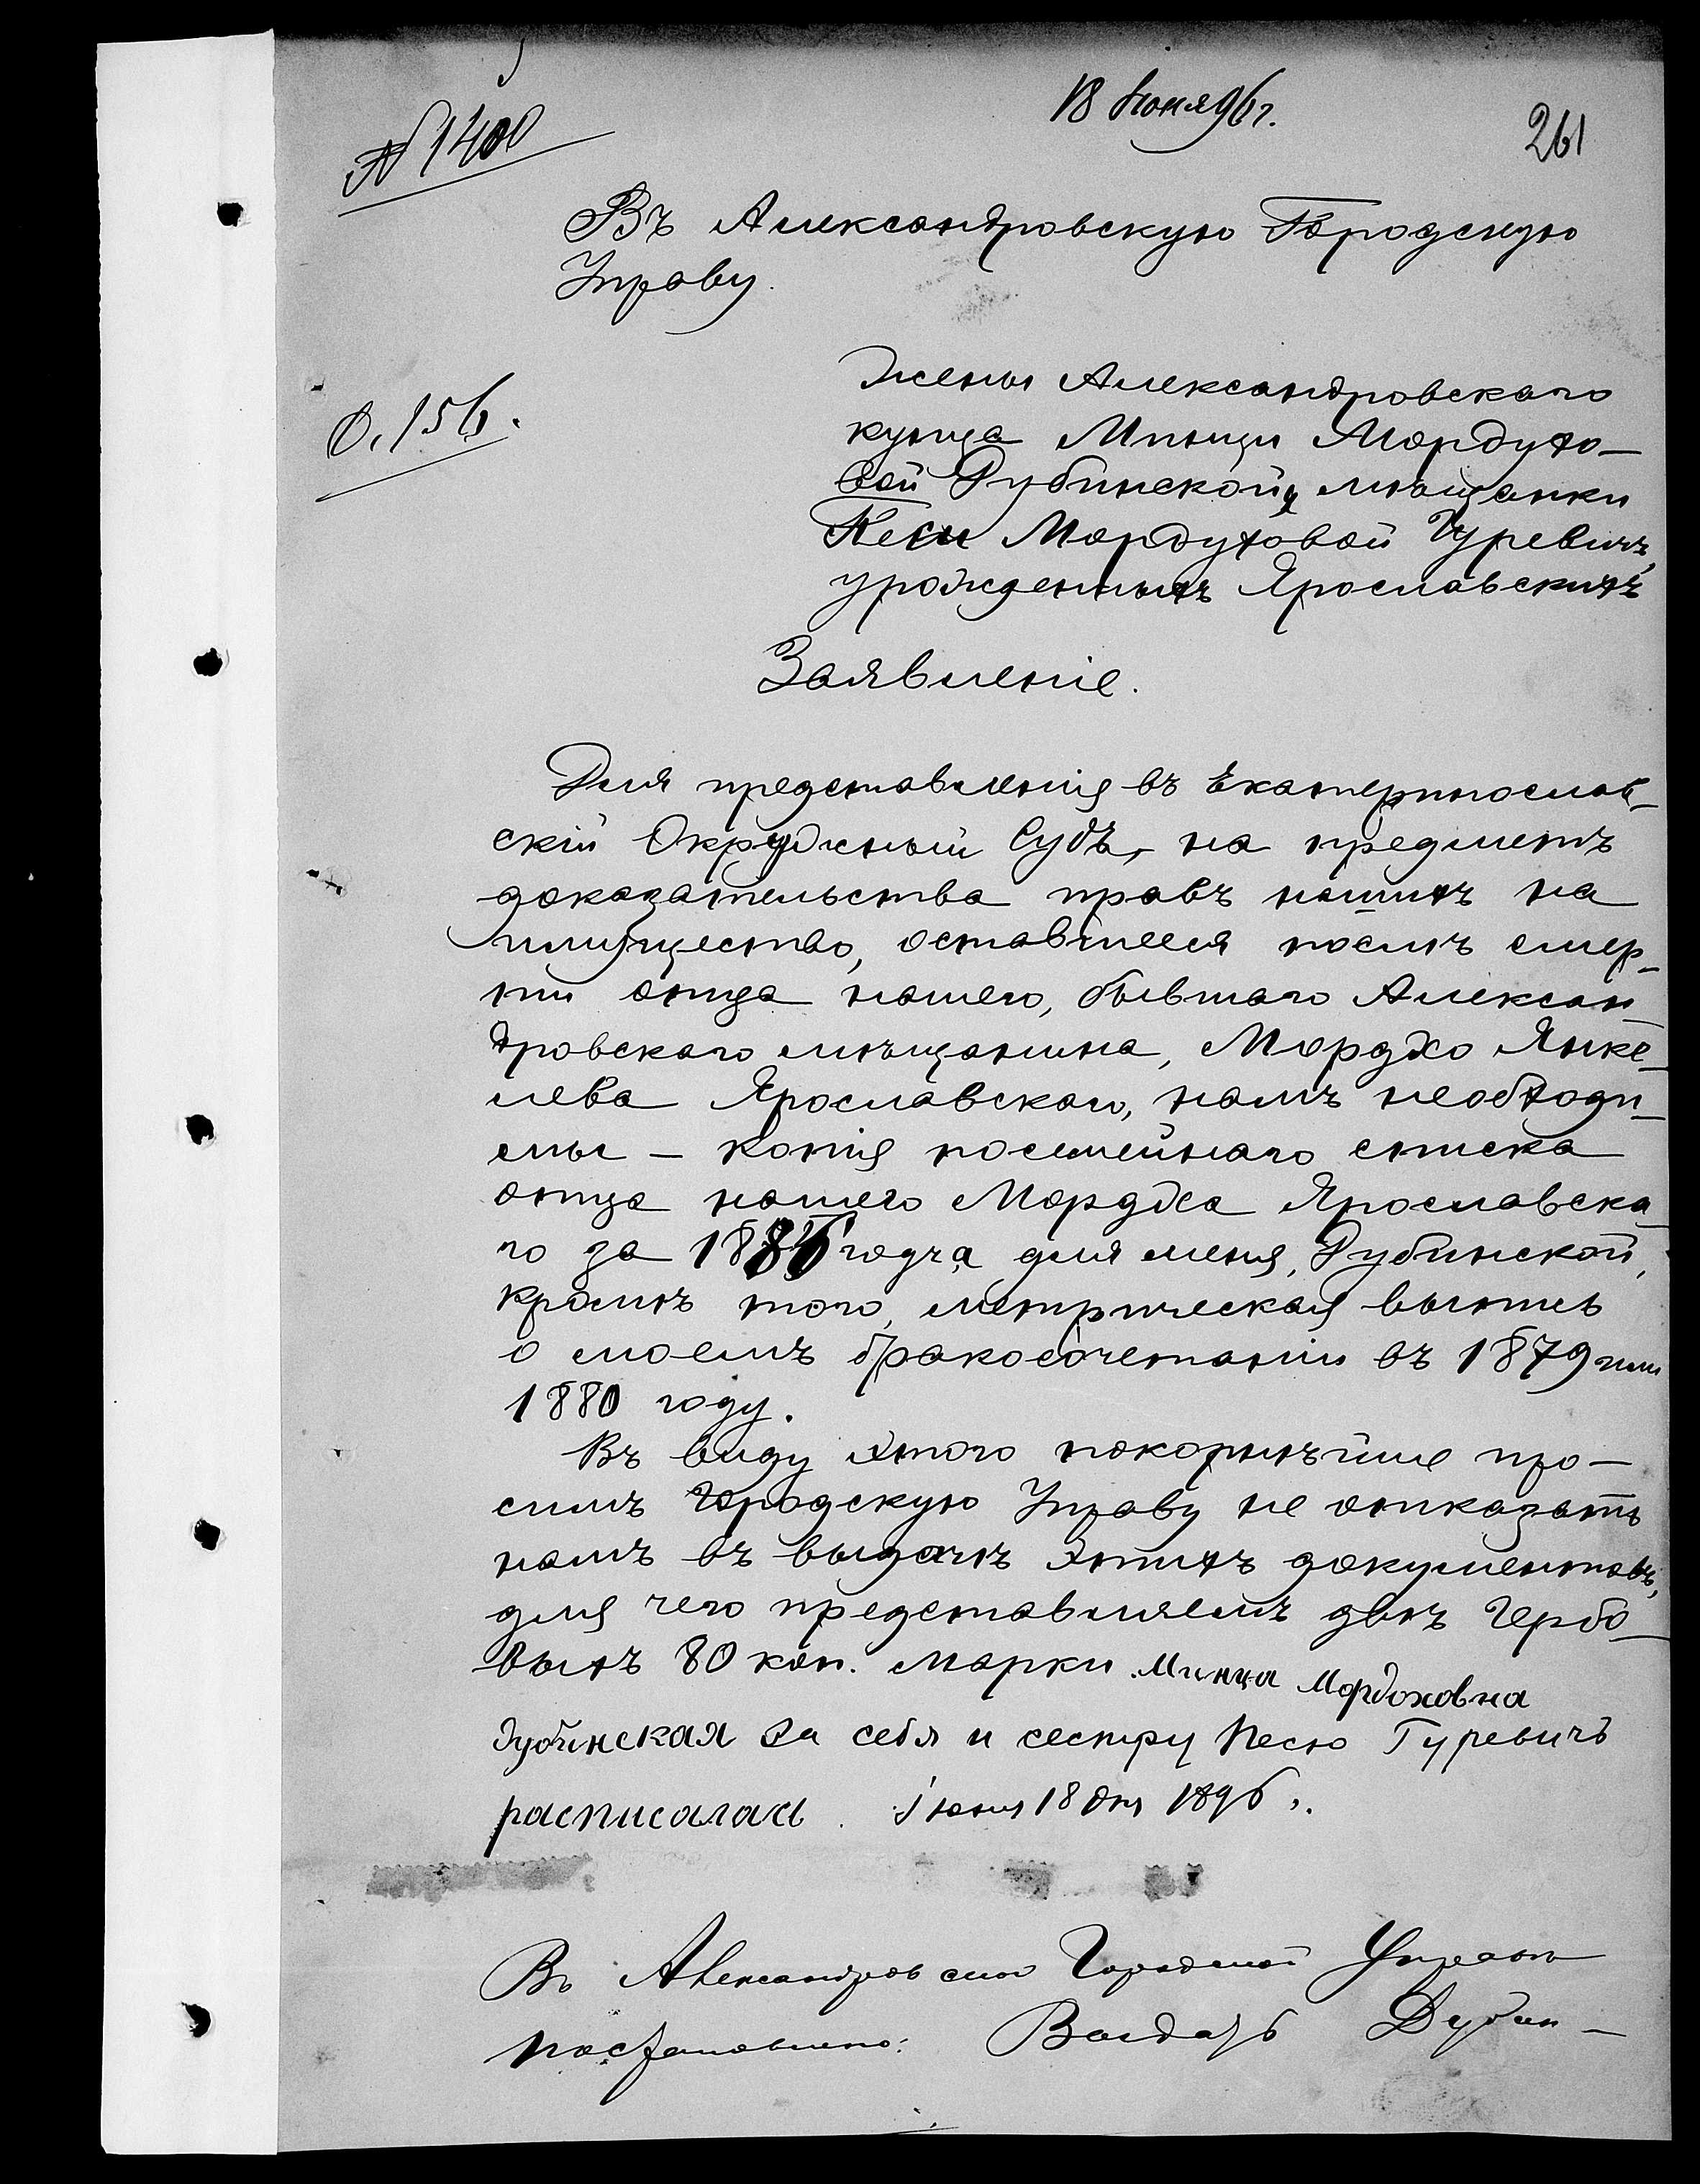 18 Июня 96 г.
№ 1400
261
Въ Александровскую Городскую
Управу.
Жены Александровскаго
О. 156.
купца Минцы Мордухо-
вой Дубинской и мѣщанки
Песи Мордуховой Гуревичъ,
урожденныхъ Ярославскихъ
Заявленіе.
Для представленія въ Екатеринослав-
скій Окружный Судъ, на предметъ
доказательства правъ нашихъ на
имущество, оставшееся послѣ смер-
ти отца нашего, бывшаго Алексан-
дровскаго мѣщанина, Мордхо Янке-
лева Ярославскаго, намъ необходи-
мы - копія посемейнаго списка
отца нашего Мордха Ярославска-
го за 1875 годъ, а для меня, Дубинской,
кромѣ того, метрическая выпись
о моемъ бракосочетаніи въ 1879 или
1880 году.
Въ виду этого покорнѣйше про-
симъ Городскую Управу не отказать
намъ въ выдачѣ этихъ документовъ,
для чего представляемъ двѣ гербо-
выхъ 80 коп. марки. Минца Мордховна
Дубинская за себя и сестру Песю Гуревичъ
расписалась. Іюня 18 дня 1896 г.
Въ Александровской Городской Управѣ
постановлено: Выдать Дубин-